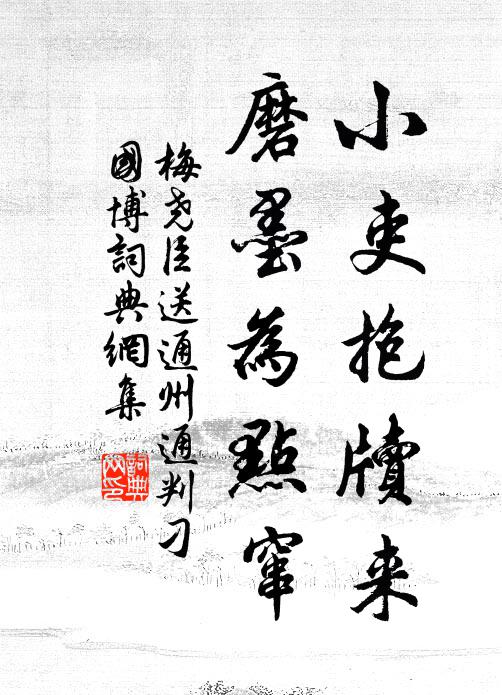 小吏抱牘来
磨墨為點竄
梅尧臣送通州通判刁
國博詞典網集
詞典
网印